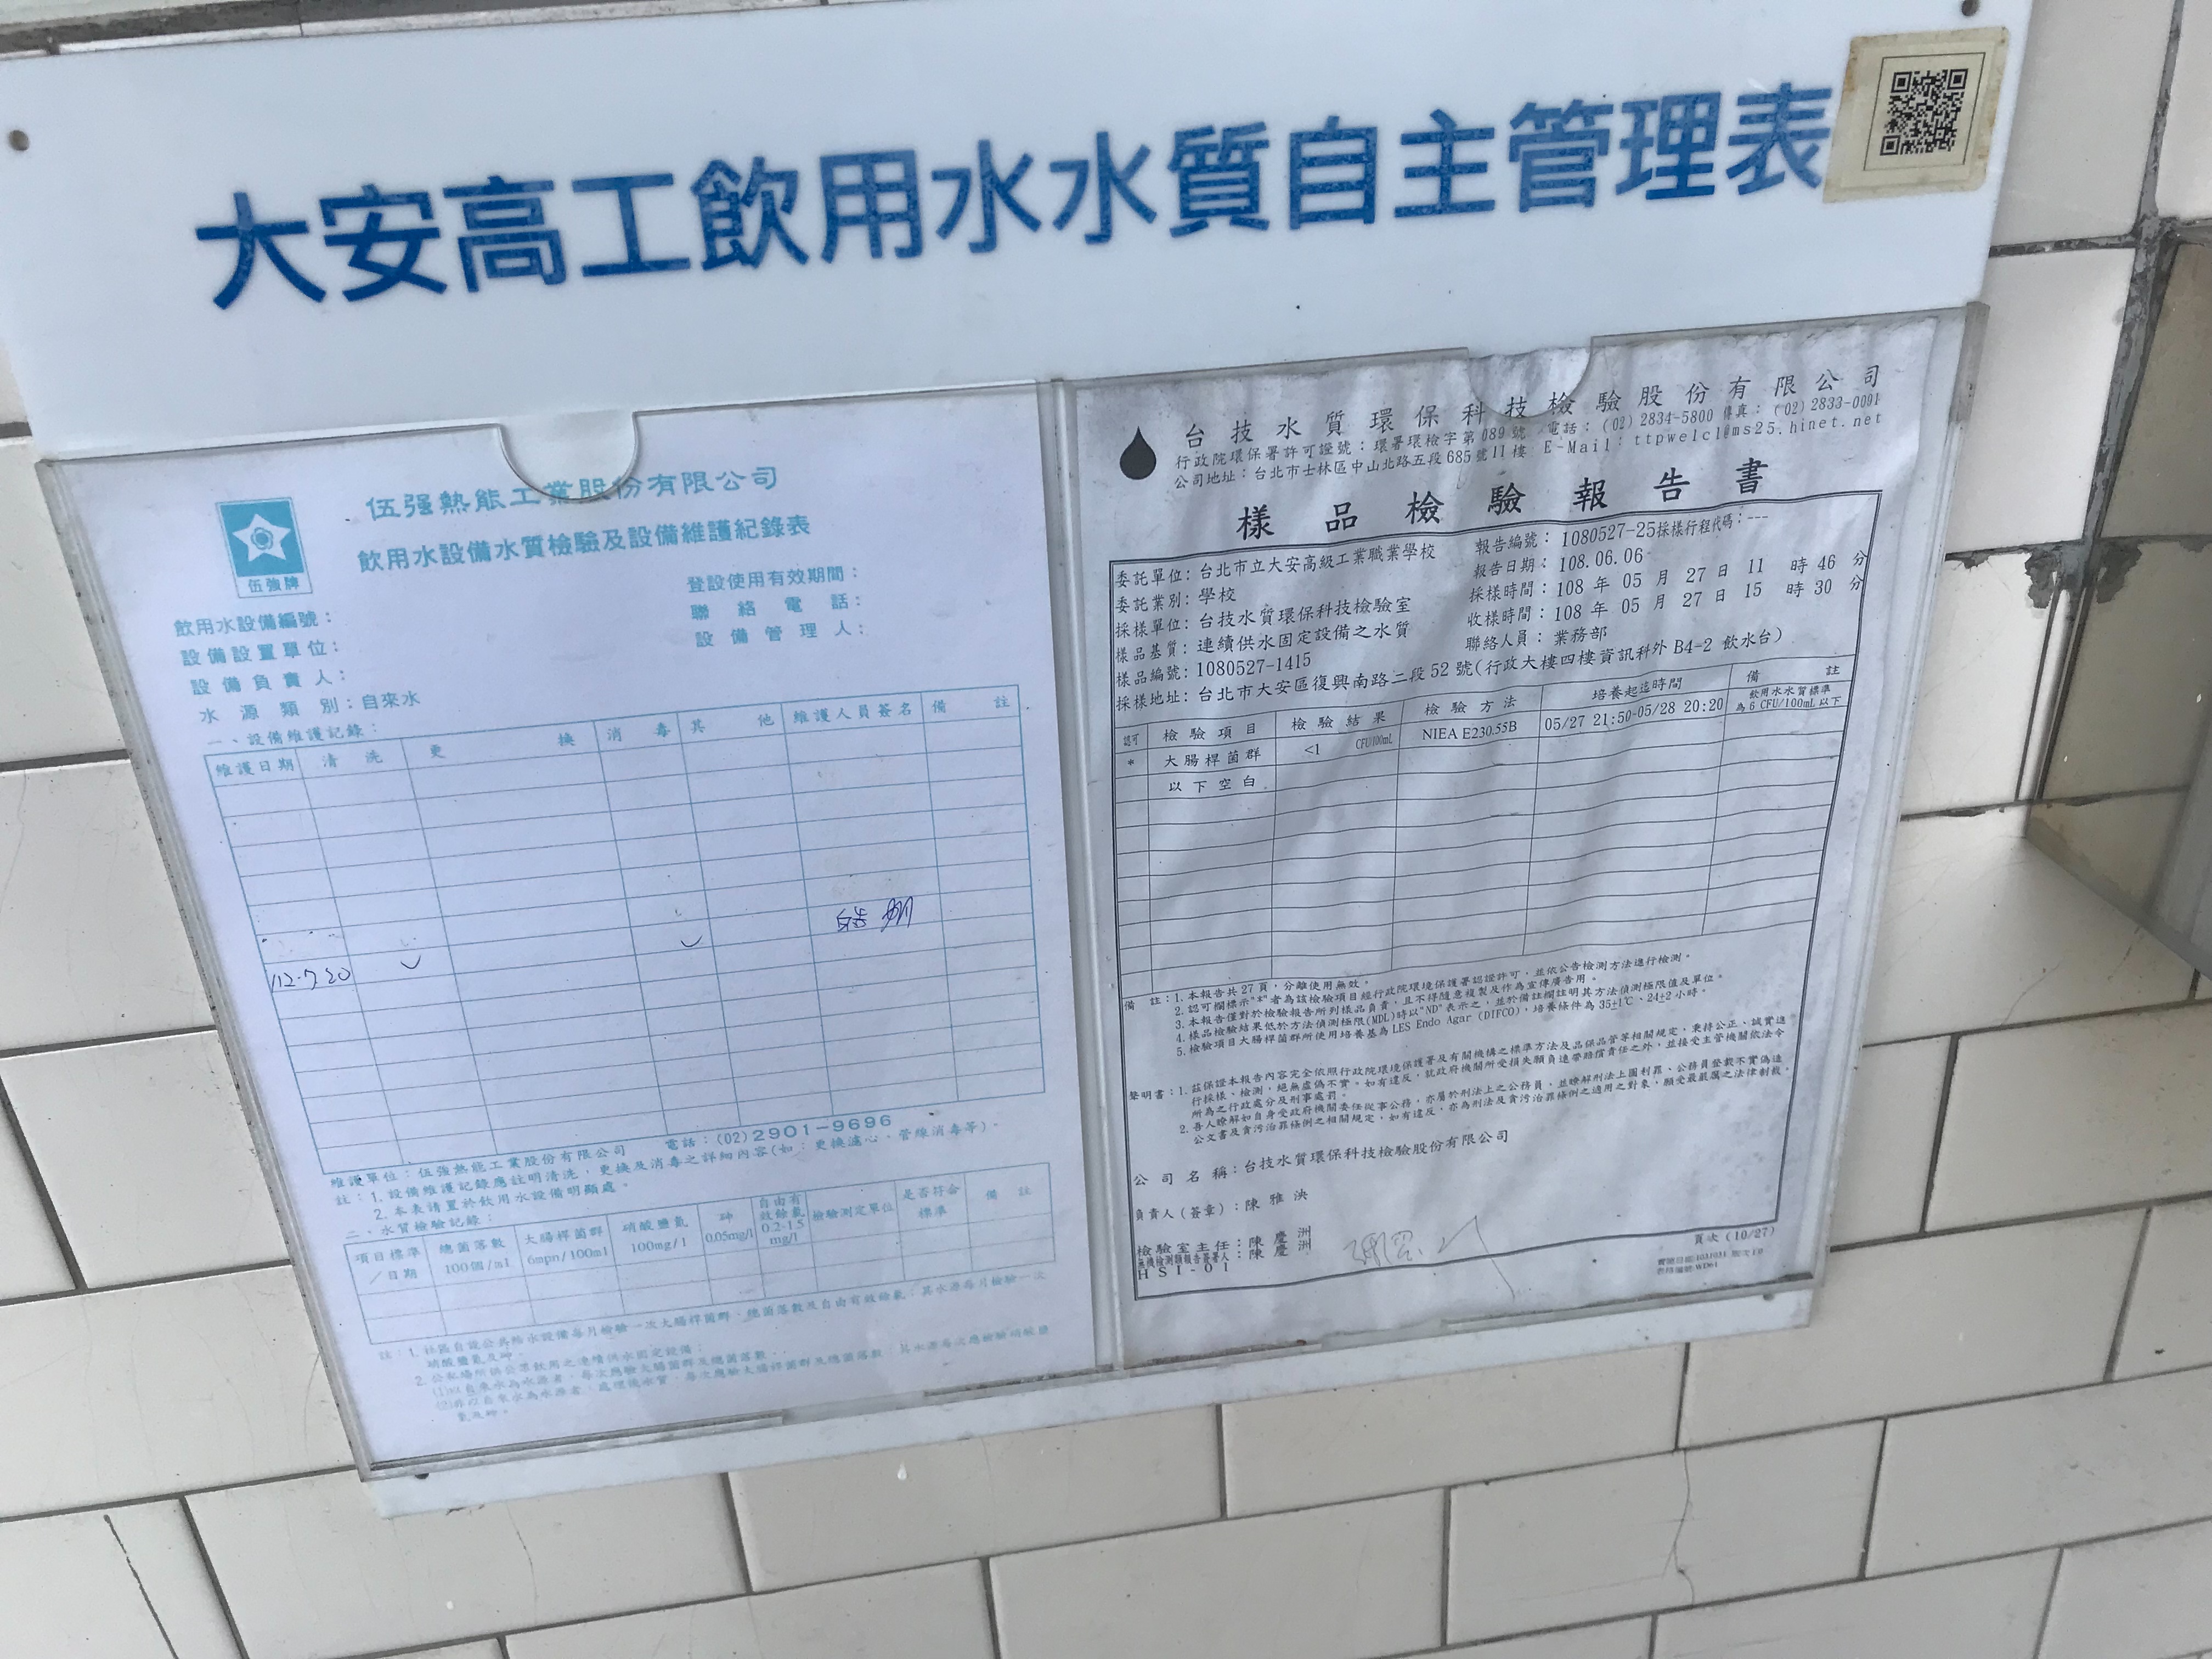 大安高工飲用水水質自主管理表
伍強牌
伍强熱能工業股份有限公司
飲用水設備水質檢驗及設備維護紀錄表
登設使用有效期間：
飲用水設備編號：
聯絡電話：
設備設置單位：
設備管理人：
設備負責人：
水源類別：自來水
一、設備維護記錄：
維護日期 清洗 更換 消毒 其他 維護人員簽名 備註
112.7.20
維護單位：伍強熱能工業股份有限公司 電話：(02)2901-9696
註：1.設備維護記錄應註明清洗，更換及消毒之詳細內容(如：更換濾心、管線消毒等)。
2.本表請置於飲用水設備明顯處。
二、水質檢驗記錄：
項目標準／日期 總菌落數 100個/ml 大腸桿菌群 6mpn/100ml 硝酸鹽氮 100mg/l 砷 0.05mg/l 自由有效餘氯 0.2-1.5 mg/l 檢驗測定單位 是否符合標準 備註
註：1.社區自設公共給水設備每月檢驗一次大腸桿菌群、總菌落數及自由有效餘氯；其水源每月檢驗一次
硝酸鹽氮及砷。
2.公私場所供公眾飲用之連續供水固定設備：
(1)以自來水為水源者，每次應檢驗大腸菌群及總菌落數
(2)非以自來水為水源者，處理後水質，每次應檢驗大腸桿菌群及總菌落數 其水源每次應檢驗硝酸鹽
氮及砷。
台技水質環保科技檢驗股份有限公司
行政院環保署許可證號：環署環檢字第089號 電話：(02)2834-5800 傳真：(02)2833-0091
公司地址：台北市士林區中山北路五段685號11樓 E-Mail：ttpwelcl@ms25.hinet.net
樣品檢驗報告書
委託單位：台北市立大安高級工業職業學校 報告編號：1080527-25採樣行程代碼：---
委託業別：學校 報告日期：108.06.06
採樣單位：台技水質環保科技檢驗室 採樣時間：108年05月27日11時46分
樣品基質：連續供水固定設備之水質 收樣時間：108年05月27日15時30分
樣品編號：1080527-1415 聯絡人員：業務部
採樣地址：台北市大安區復興南路二段52號(行政大樓四樓資訊科外B4-2飲水台)
認可 檢驗項目 檢驗結果 檢驗方法 培養起迄時間 備註
* 大腸桿菌群 <1 CFU/100mL NIEA E230.55B 05/27 21:50-05/28 20:20 飲用水水質標準為6 CFU/100mL以下
以下空白
備註：1.本報告共27頁，分離使用無效。
2.認可欄標示"*"者為該檢驗項目經行政院環境保護署認證許可，並依公告檢測方法進行檢測。
3.本報告僅對於檢驗報告所列樣品負責，且不得隨意複製及作為宣傳廣告用。
4.樣品檢驗結果低於方法偵測極限(MDL)時以"ND"表示之，並於備註欄註明其方法偵測極限值及單位。
5.檢驗項目大腸桿菌群所使用培養基為LES Endo Agar (DIFCO)，培養條件為35±1℃、24±2小時。
聲明書：1.茲保證本報告內容完全依照行政院環境保護署及有關機構之標準方法及品保品管等相關規定，秉持公正、誠實進
行採樣、檢測，絕無虛偽不實，如有違反，就政府機關所受損失願負連帶賠償責任之外，並接受主管機關依法令
所為之行政處分及刑事處罰。
2.吾人瞭解如自身受政府機關委任從事公務，亦屬於刑法上之公務員，並瞭解刑法上圖利罪、公務員登載不實偽造
公文書及貪污治罪條例之相關規定，如有違反，亦為刑法及貪污治罪條例之適用之對象，願受最嚴厲之法律制裁。
公司名稱：台技水質環保科技檢驗股份有限公司
負責人(簽章)：陳雅泱
檢驗室主任：陳慶洲
無機檢測類報告簽署人：陳慶洲
HSI-01
頁次(10/27)